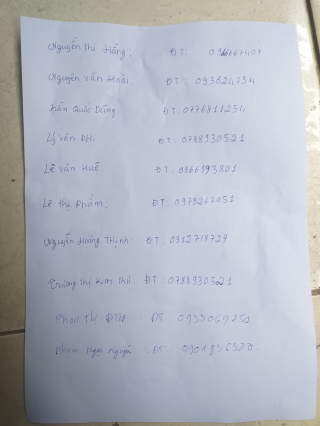 Nguyễn Thị Hằng: ĐT:
Nguyễn Văn Hoài. ĐT: 093624734
Trần Quốc Dũng ĐT: 0776811234
Lý Văn Phi ĐT: 0788930521
Lê Văn Huê ĐT: 0866993801
Lê Thị Phẩm: ĐT: 0979267051
Nguyễn Hoàng Thịnh: ĐT: 0912718729
Trương Thị Kim Thu: ĐT: 0788930521
Phan Thị ĐT
Phạm Ngọc Nguyên: ĐT: